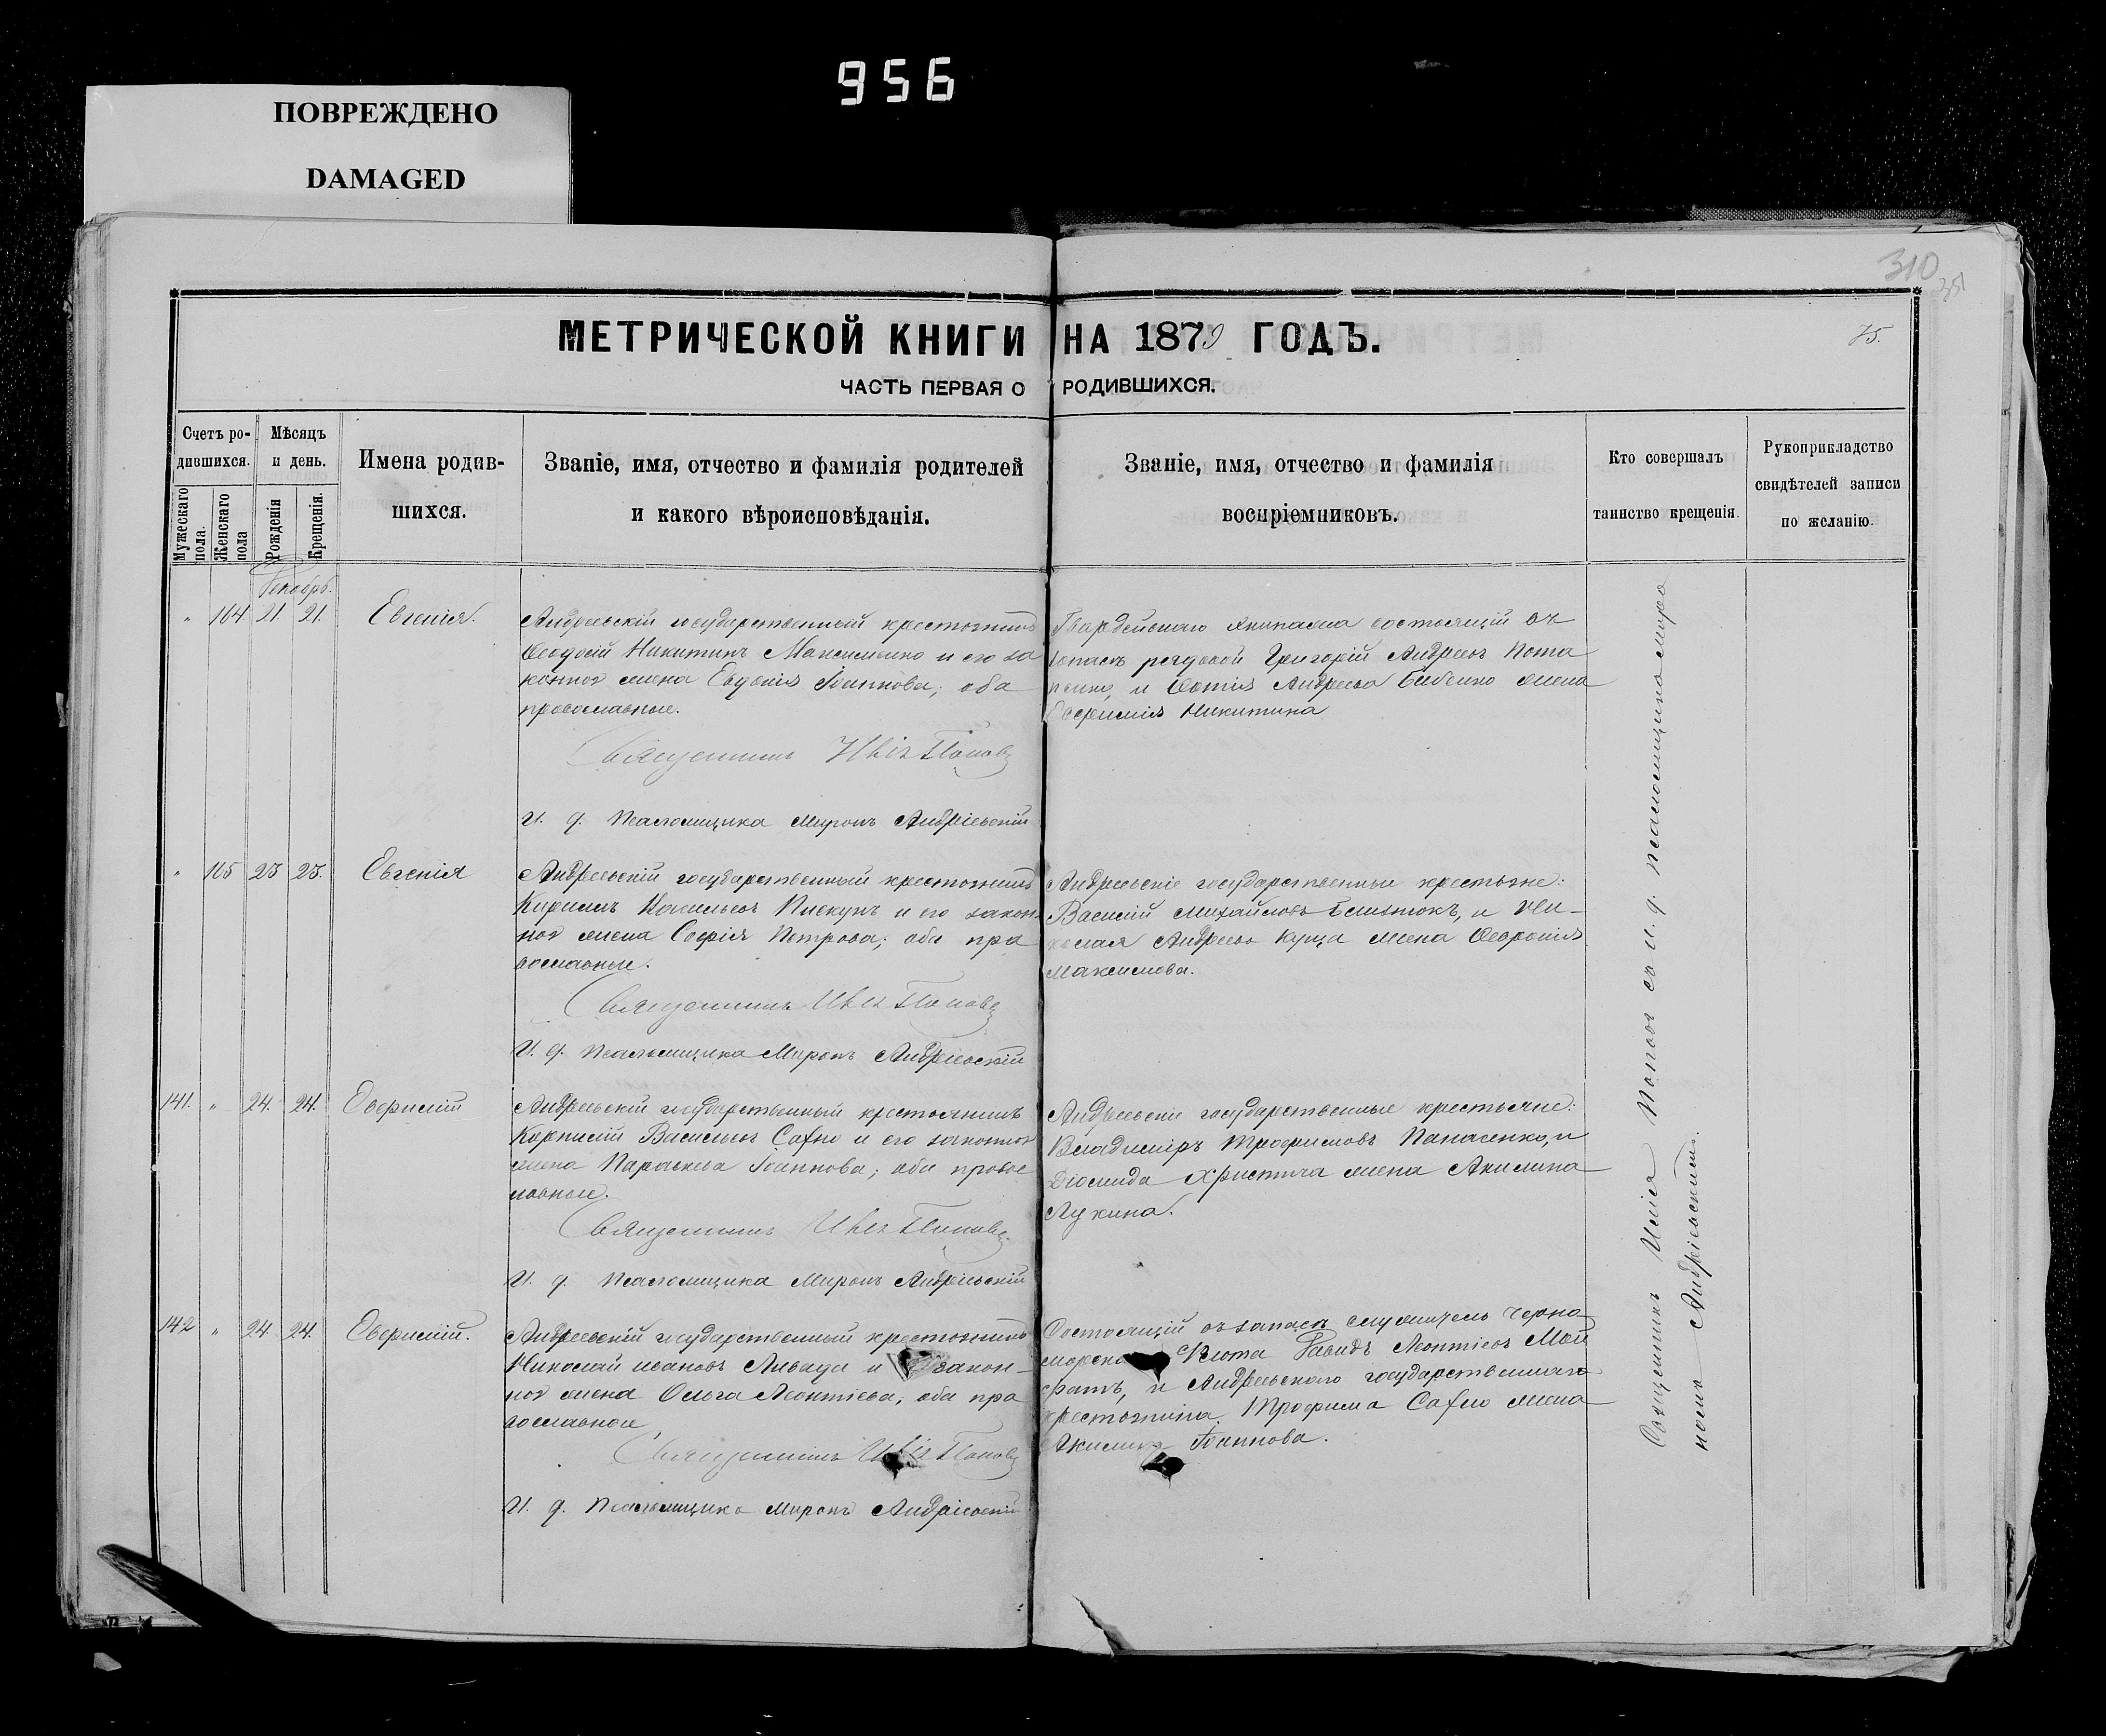 956
ПОВРЕЖДЕНО
DAMAGED
310
351
75.
МЕТРИЧЕСКОЙ КНИГИ НА 1879 ГОДЪ.
ЧАСТЬ ПЕРВАЯ О РОДИВШИХСЯ.
Счетъ родившихся.
Мужескаго пола.
Женскаго пола
Мѣсяцъ и день.
Рожденія
Крещенія.
Имена родив-
шихся.
Званіе, имя, отчество и фамилія родителей
и какого вѣроисповѣданія.
Званіе, имя, отчество и фамилія
воспріемниковъ.
Кто совершалъ
таинство крещенія.
Рукоприкладство
свидѣтелей записи
по желанію.
Декабрь.
" 164 21. 21. Евгенія.
Андреевскій государственный крестьянинъ
Ѳеодосій Никитинъ Максименко и его за
конная жена Евдокія Іоаннова; оба
православные.
Священникъ Илія Поповъ
И. д. Псаломщика Миронъ Андріевскій
Гвардейскаго экипажа состоящій въ
запасѣ рядовой Григорій Андреевъ Пота
пенко, и Фотія Андреева Бабенко жена
Евфимія Никитина
" 165 23 23. Евгенія
Андреевскій государственный крестьянинъ
Кириллъ Васильевъ Пискунъ и его закон
ная жена Софія Петрова; оба пра
вославные.
Священникъ Илія Поповъ
И. д. Псаломщика Миронъ Андріевскій
Андреевскіе государственные крестьяне:
Василій Михайловъ Близнюкъ, и Ни-
колая Андреева Куца жена Февронія
Максимова.
141. " 24. 24. Евфимій
Андреевскій государственный крестьянинъ
Корнилій Васильевъ Сафно и его законная
жена Параскева Іоаннова; оба правос
лавные.
Священникъ Илія Поповъ
И. д. Псаломщика Миронъ Андріевскій
Андреевскіе государственные крестьяне:
Владиміръ Трофимовъ Панасенко, и
Діомида Христича жена Акилина
Лукина.
142 " 24 24. Евфимій.
Андреевскій государственный крестьянинъ
Николай Ивановъ и закон-
ная жена Ольга Леонтіева; оба пра
вославные
Священникъ Илія Поповъ
И. д. Псаломщика Миронъ Андріевскій
Состоящій въ запасѣ служитель Черно
морска флота Давидъ Леонтіевъ
и Андреевскаго государственнаго
крестьянина Трофима Сафно жена
Акилина Іоаннова.
Священникъ Илія Поповъ съ и. д. псаломщика Миро
номъ Андріевскимъ.